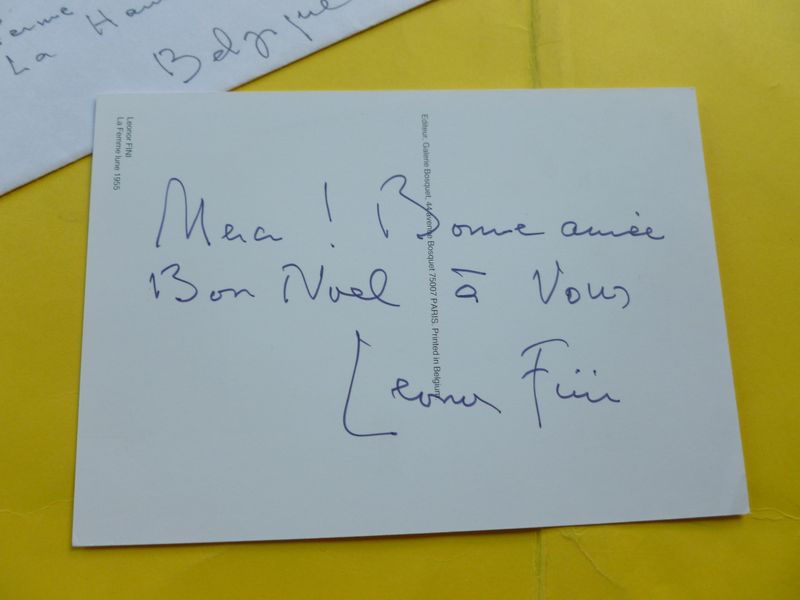 La
Belgique
Leonor FINI
La Femme lune 1955
Editeur, Galerie Bosquet, 44 avenue Bosquet 75007 PARIS. Printed in Belgium
Merci ! Bonne année
Bon Noël à Vous
Leonor Fini